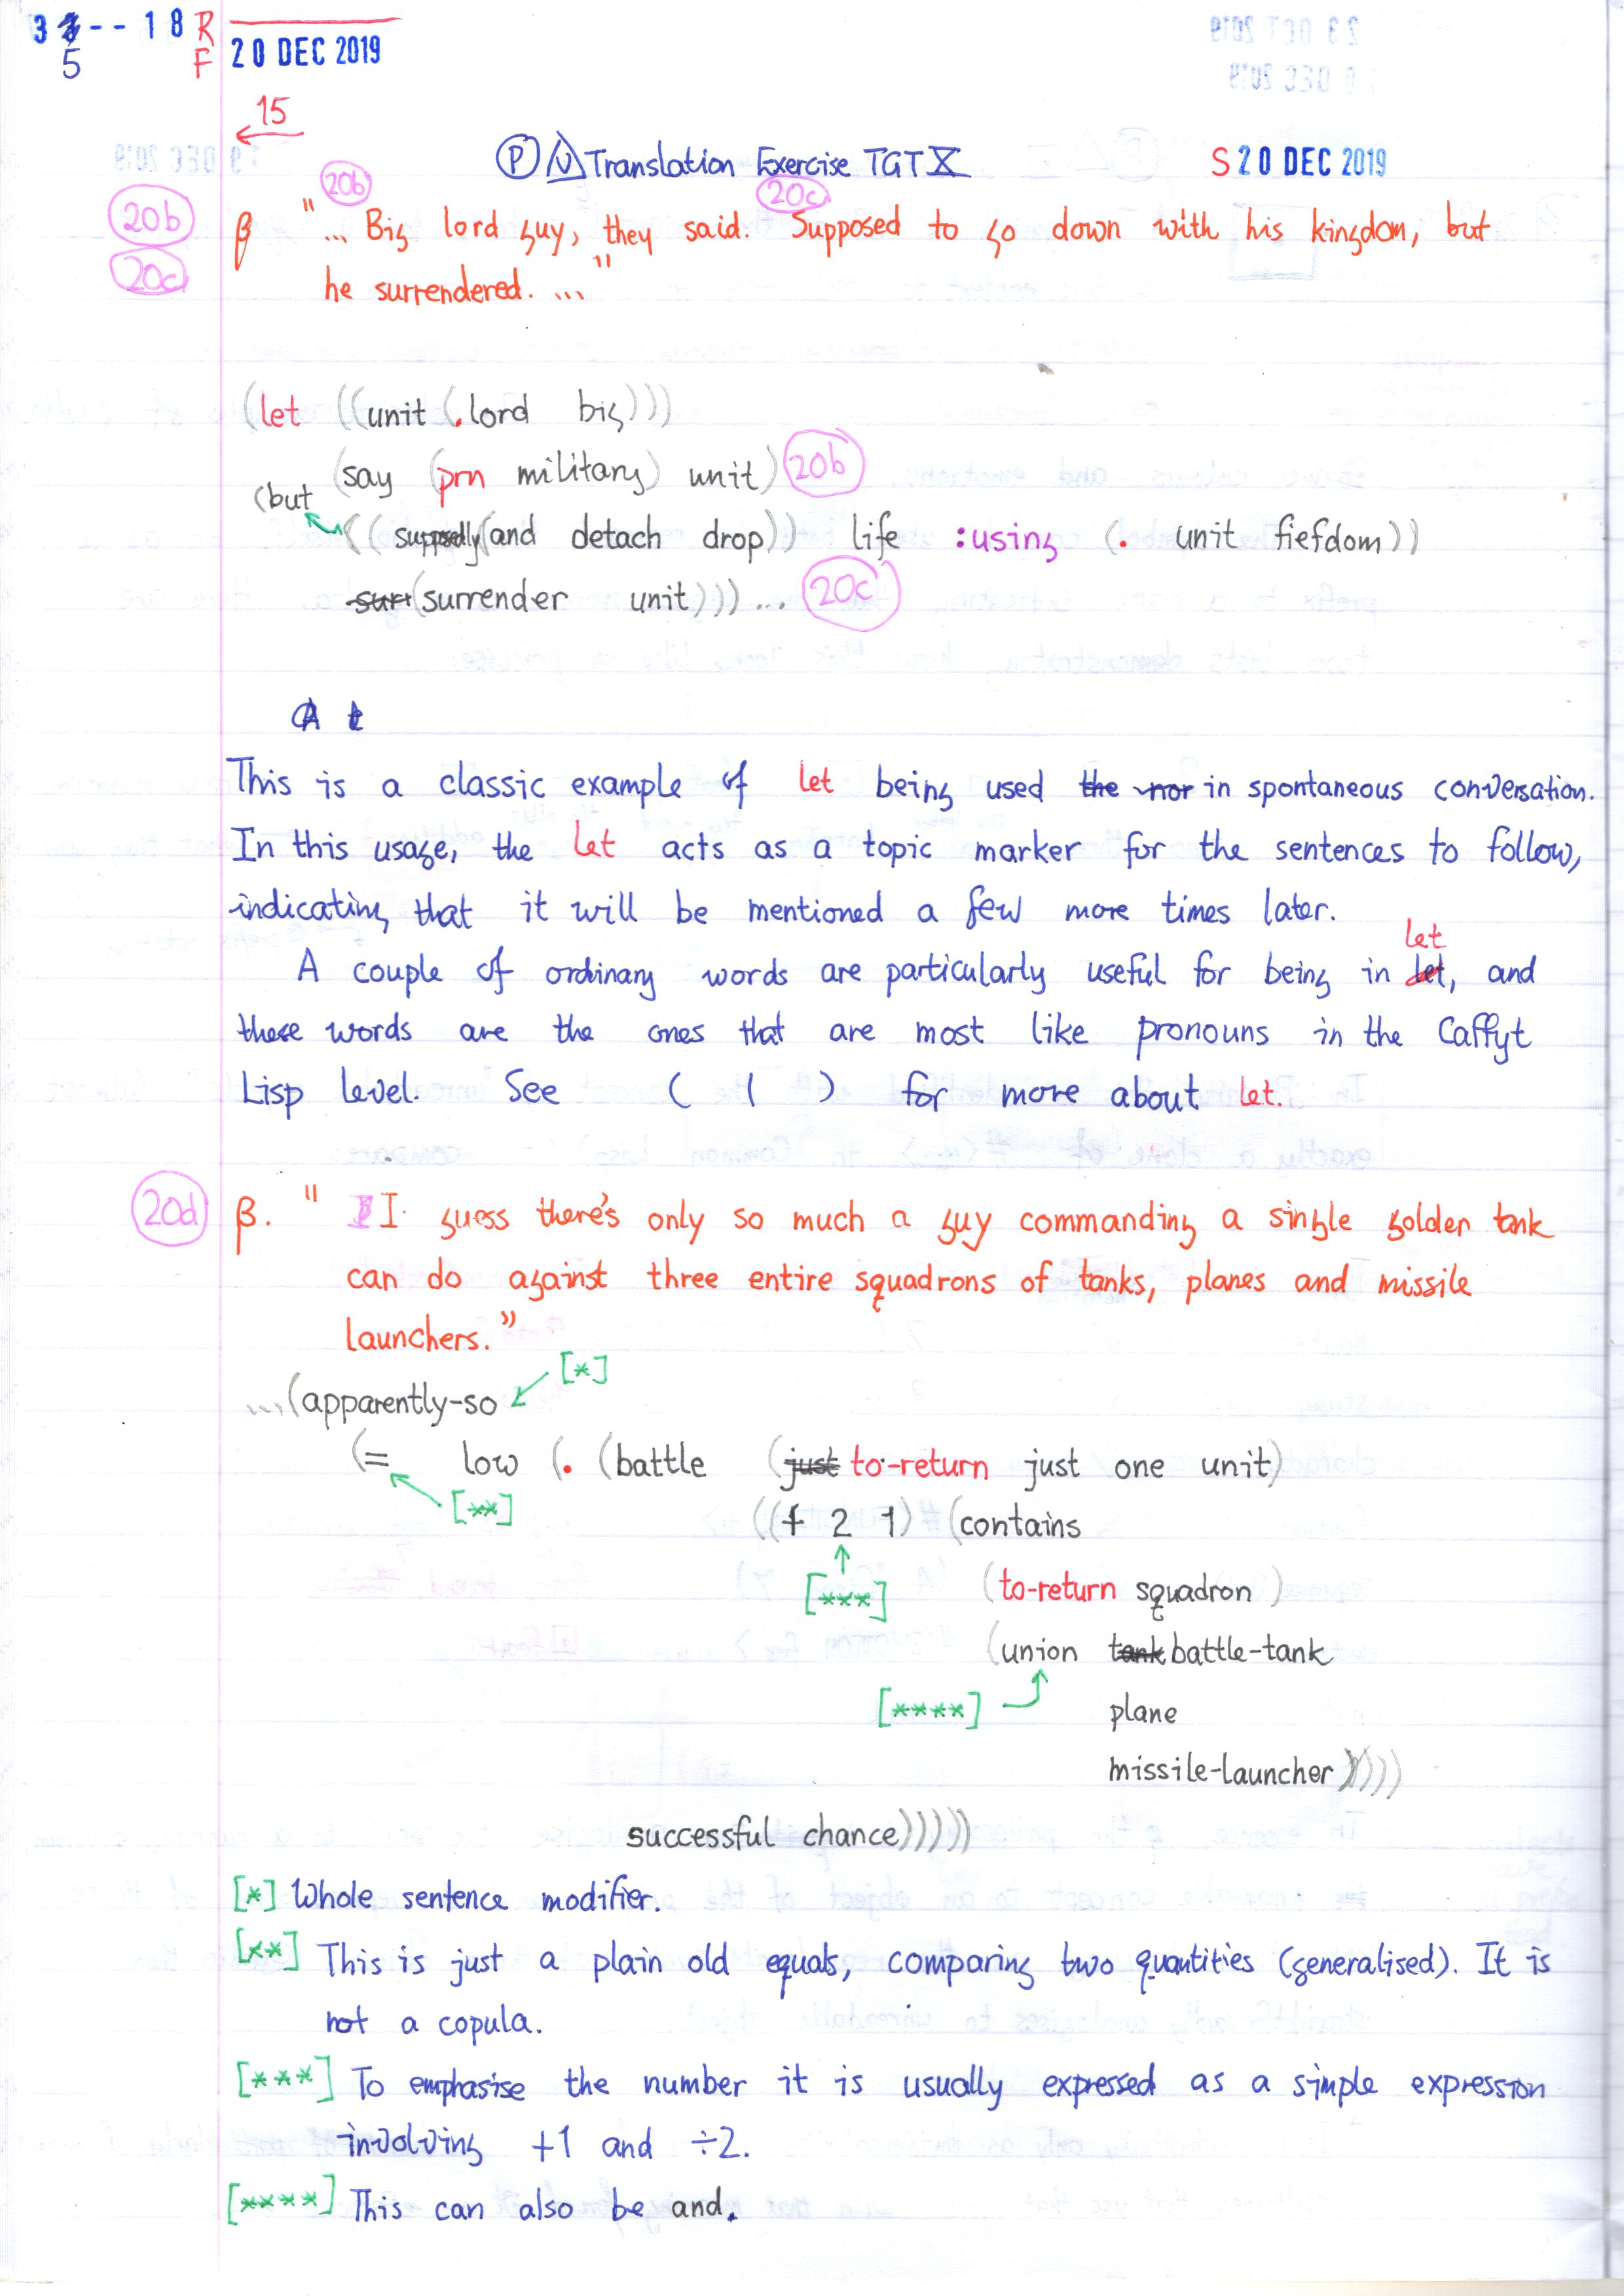 3 -- 18 R 20 DEC 2019
5 F
15
P Translation Exercise TGT X S 20 DEC 2019
20b 20c
20b β "... Big lord guy, they said. Supposed to go down with his kingdom, but
20c he surrendered. ..."
(let ((unit (.lord big)))
(say (prn military) unit) 20b
(but ((supposedly (and detach drop)) life :using (. unit fiefdom))
surr (surrender unit))) ... 20c
A t
This is a classic example of let being used the nor in spontaneous conversation.
In this usage, the let acts as a topic marker for the sentences to follow,
indicating that it will be mentioned a few more times later.
let
A couple of ordinary words are particularly useful for being in let, and
these words are the ones that are most like pronouns in the Caffyt
Lisp level. See ( | ) for more about let.
20d β. " I guess there's only so much a guy commanding a single golden tank
can do against three entire squadrons of tanks, planes and missile
launchers."
[*]
...(apparently-so
(= low (. (battle (just to-return just one unit)
[**]
((+ 2 1) (contains
[***] (to-return squadron)
(union tank battle-tank
[****] plane
missile-launcher)))))
successful chance)))))
[*] Whole sentence modifier.
[**] This is just a plain old equals, comparing two quantities (generalised). It is
not a copula.
[***] To emphasise the number it is usually expressed as a simple expression
involving +1 and ÷2.
[****] This can also be and.